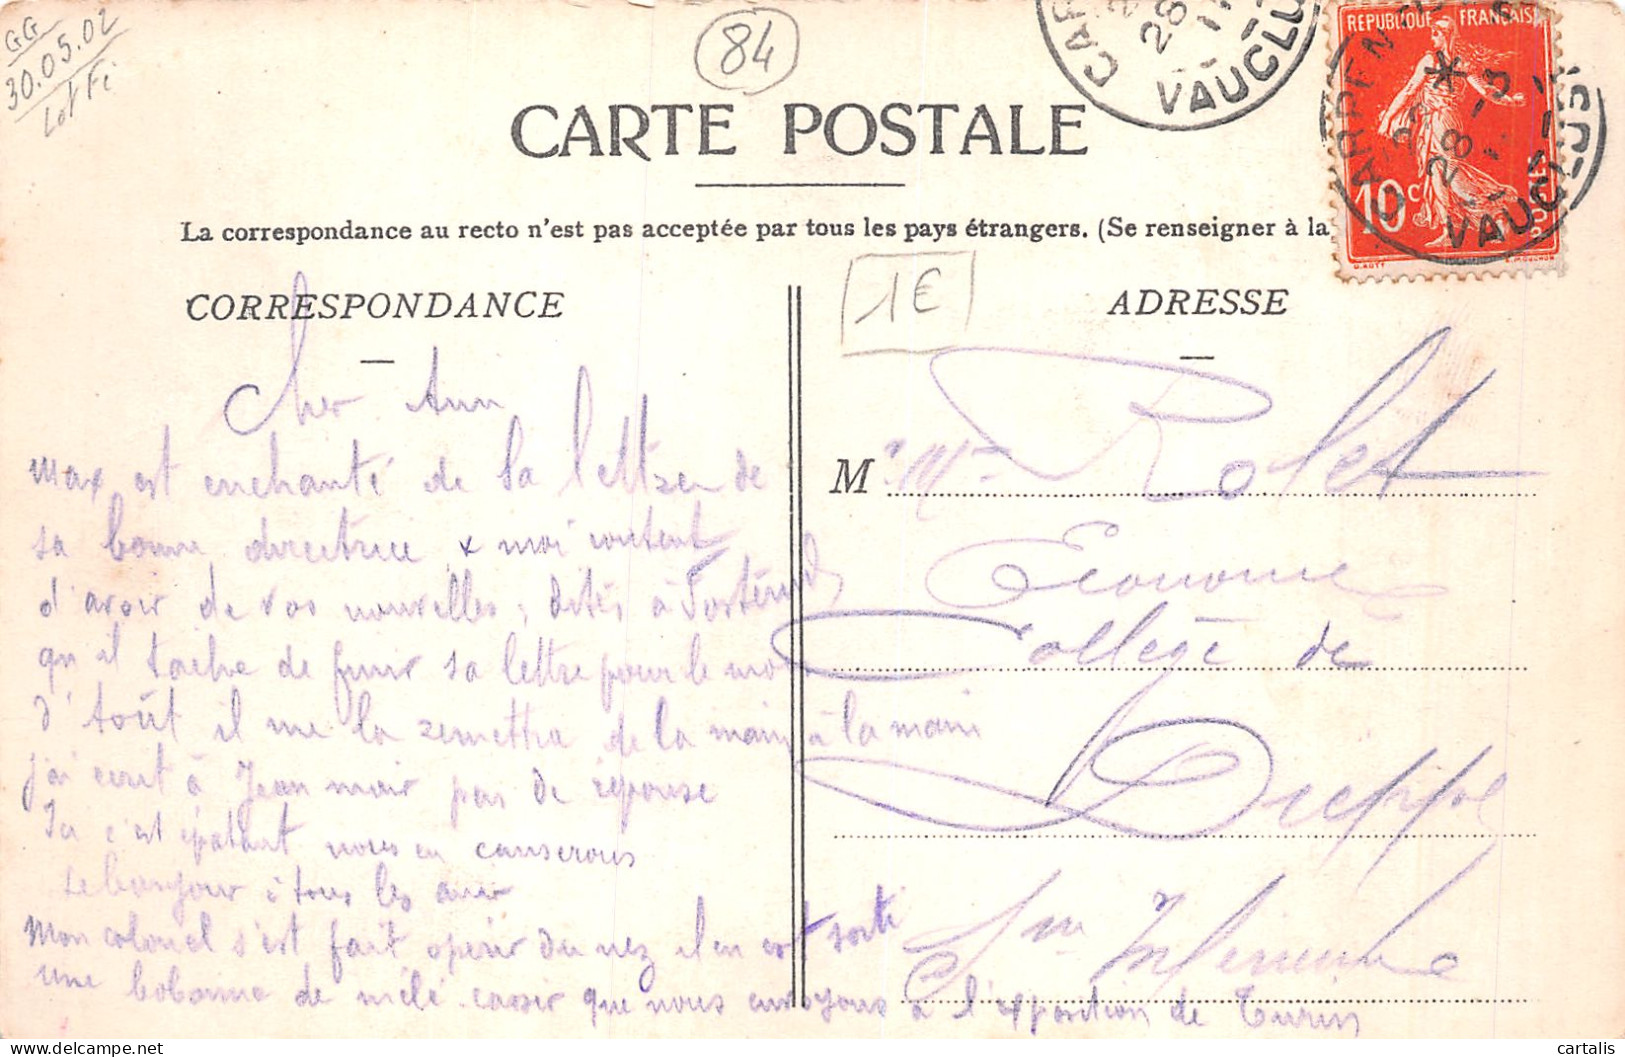 GG
30.05.02
Lot Fi
84
VAUCLUSE
REPUBLIQUE FRANÇAISE
10c
CARPENTRAS
28-3
VAUCLUSE
CARTE POSTALE
La correspondance au recto n'est pas acceptée par tous les pays étrangers. (Se renseigner à la
CORRESPONDANCE
1€
ADRESSE
Cher Ami
Max est enchanté de la lettre de
sa bonne directrice & moi content
d'avoir de vos nouvelles, dites à
qu'il tache de finir sa lettre pour le moi
d'août il me la remettra de la main à la main
j'ai écrit à Jean mais pas de réponse
Ici c'est épatant nous en causerons
le bonjour à tous les amis
Mon colonel s'est fait opérir du nez il en est sorti
une bobonne de que nous envoyons à l'exposition de Turin
M Rolet
Econome
Collège de
Dieppe
Sne Inférieure
cartalis